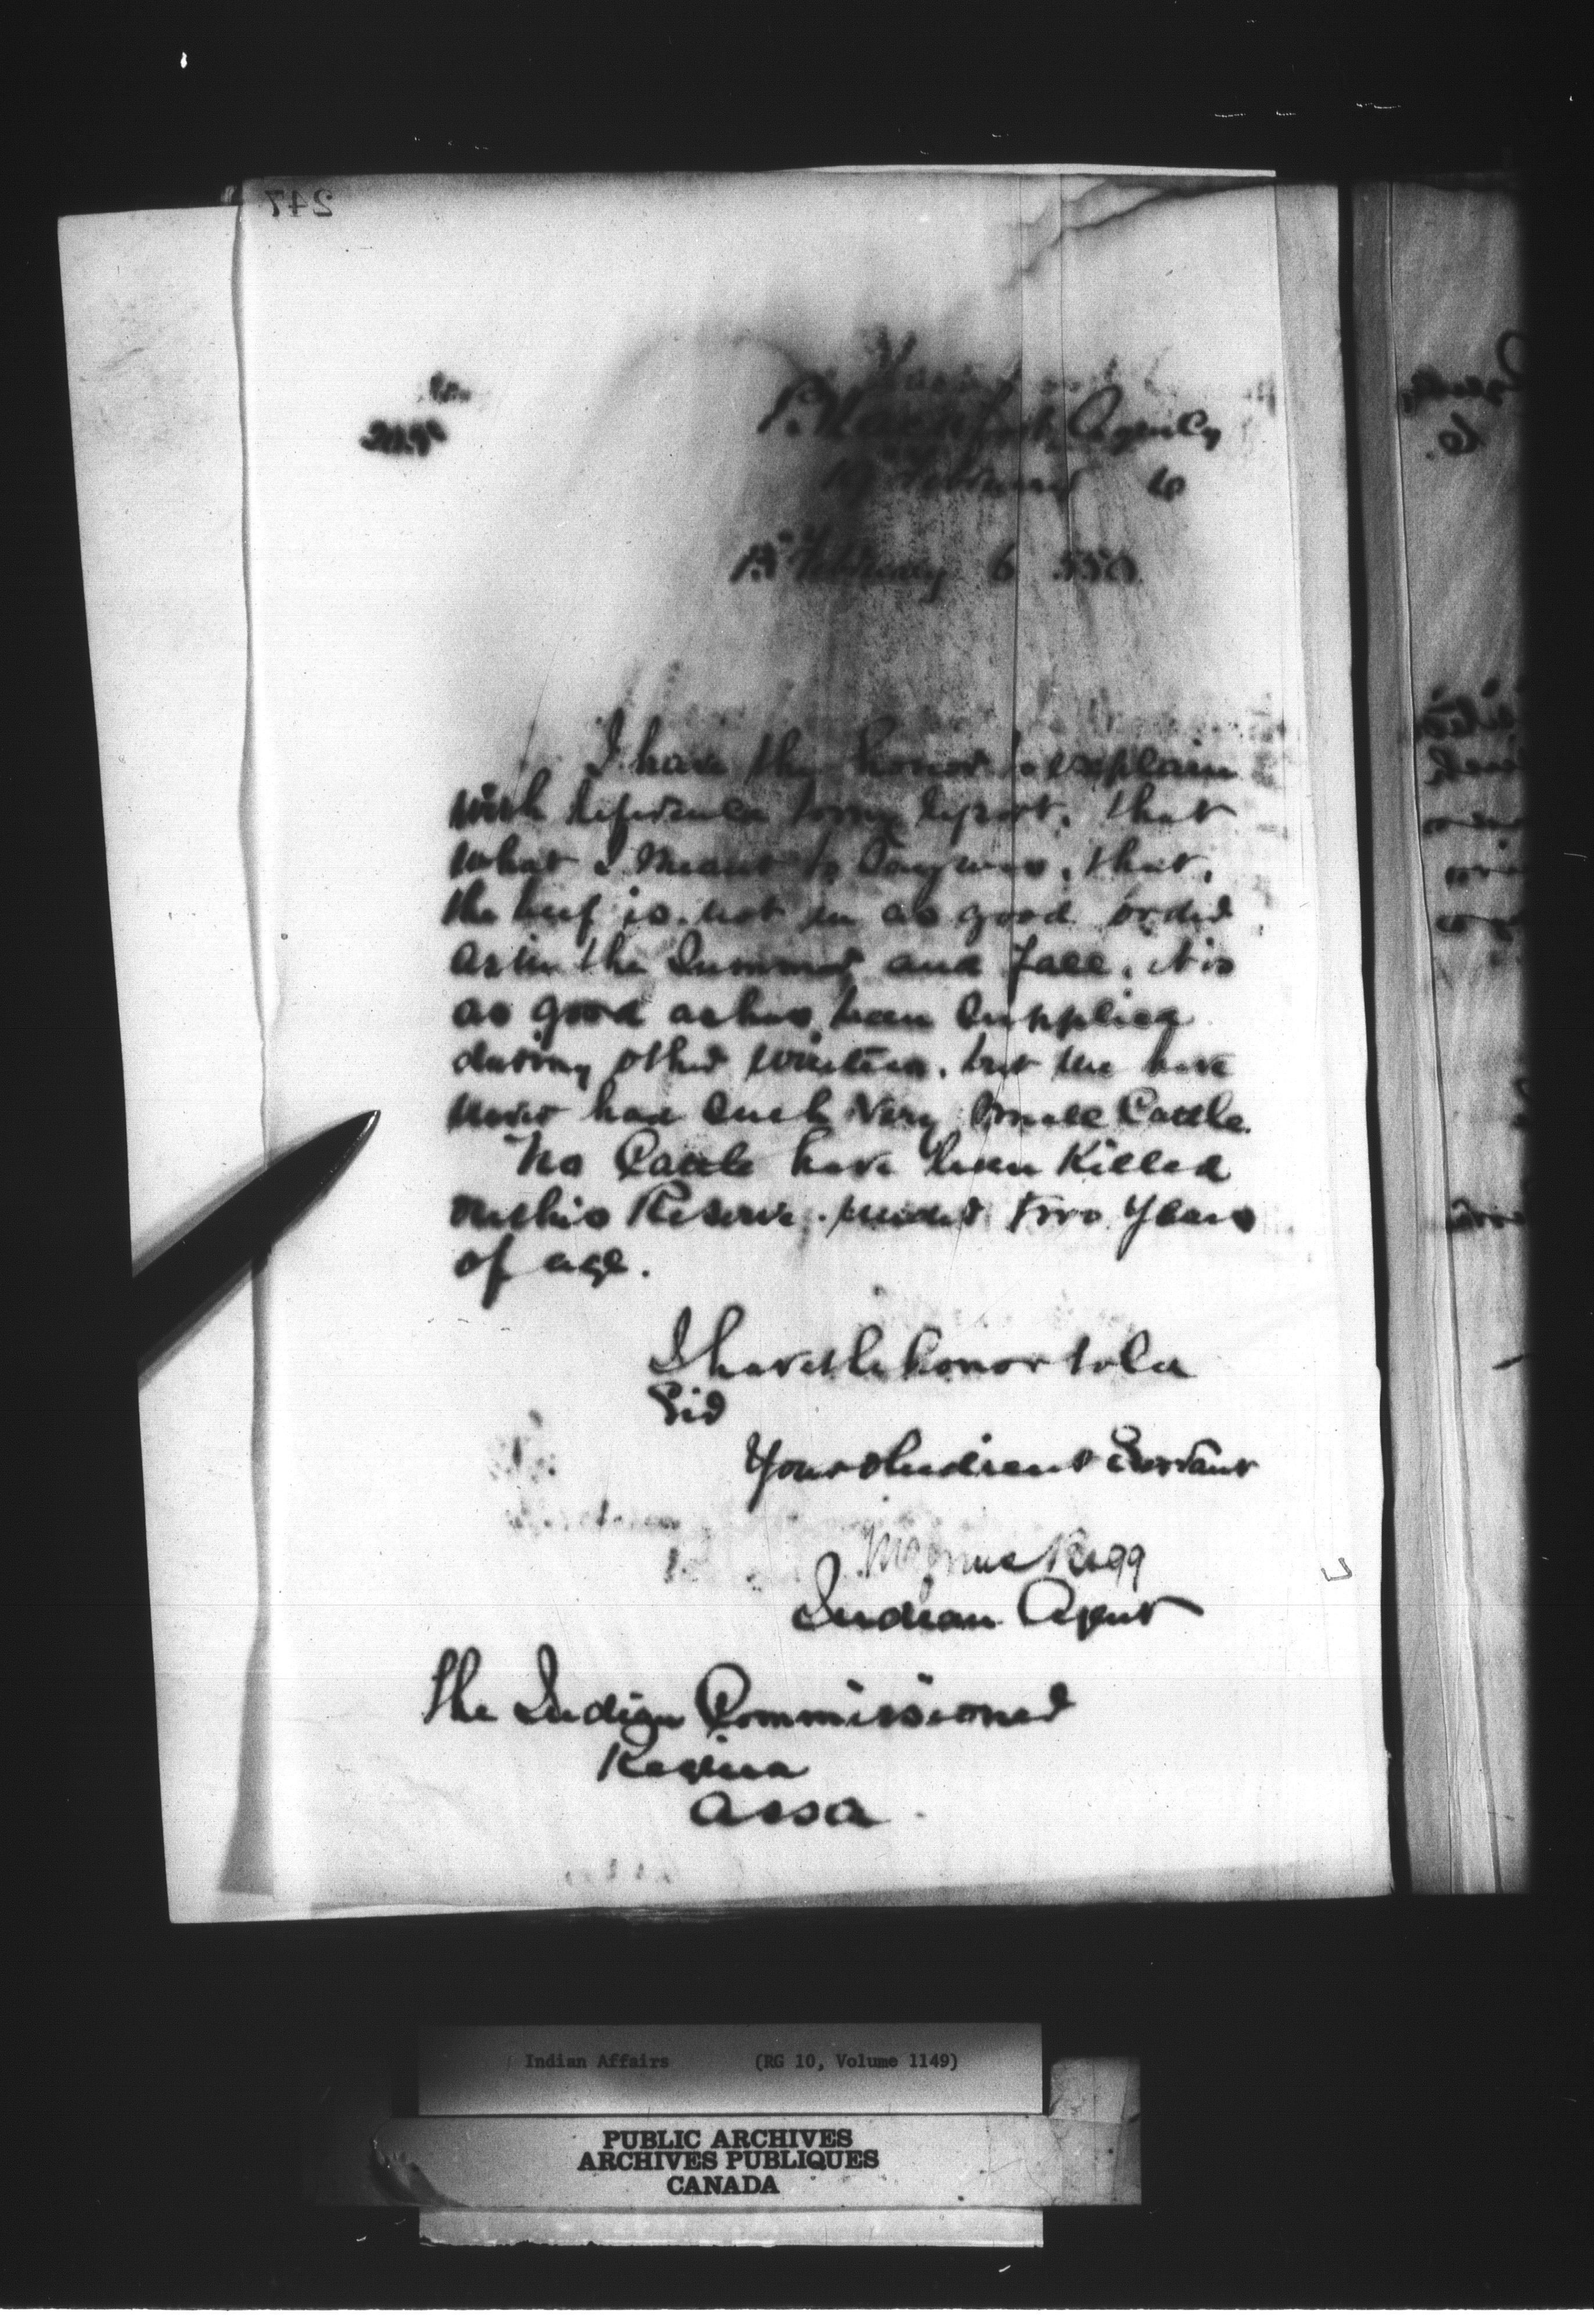 247
Agency
February 6
February 6 550
I have the honor to explain
with reference to my report, that
what I meant to say was, that,
the beef is not in as good order
as in the Summer and Fall, it is
as good as has been supplied
during other winters, but we have
never had such very small Cattle.
No Cattle have been Killed
on this Reserve under two years
of age.
I have the honor to be
Sir
Your obedient Servant
Magnus Begg
Indian Agent
The Indian Commissioner
Regina
Assa
Indian Affairs (RG 10, Volume 1149)
PUBLIC ARCHIVES
ARCHIVES PUBLIQUES
CANADA